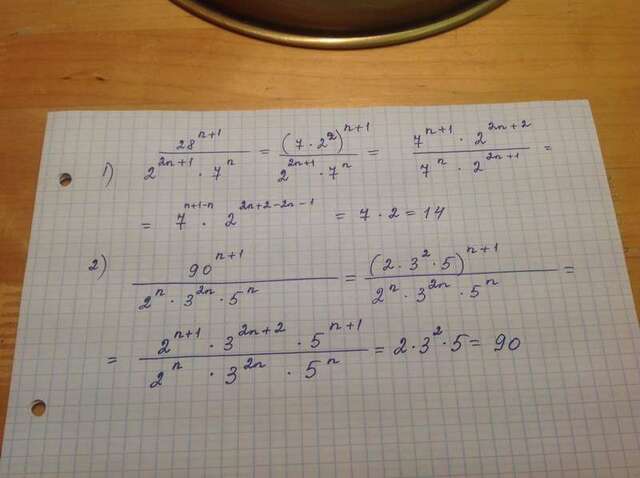 1) \frac{28^{n+1}}{2^{2n+1} \cdot 7^n} = \frac{(7 \cdot 2^2)^{n+1}}{2^{2n+1} \cdot 7^n} = \frac{7^{n+1} \cdot 2^{2n+2}}{7^n \cdot 2^{2n+1}} =
= 7^{n+1-n} \cdot 2^{2n+2-2n-1} = 7 \cdot 2 = 14
2) \frac{90^{n+1}}{2^n \cdot 3^{2n} \cdot 5^n} = \frac{(2 \cdot 3^2 \cdot 5)^{n+1}}{2^n \cdot 3^{2n} \cdot 5^n} =
= \frac{2^{n+1} \cdot 3^{2n+2} \cdot 5^{n+1}}{2^n \cdot 3^{2n} \cdot 5^n} = 2 \cdot 3^2 \cdot 5 = 90